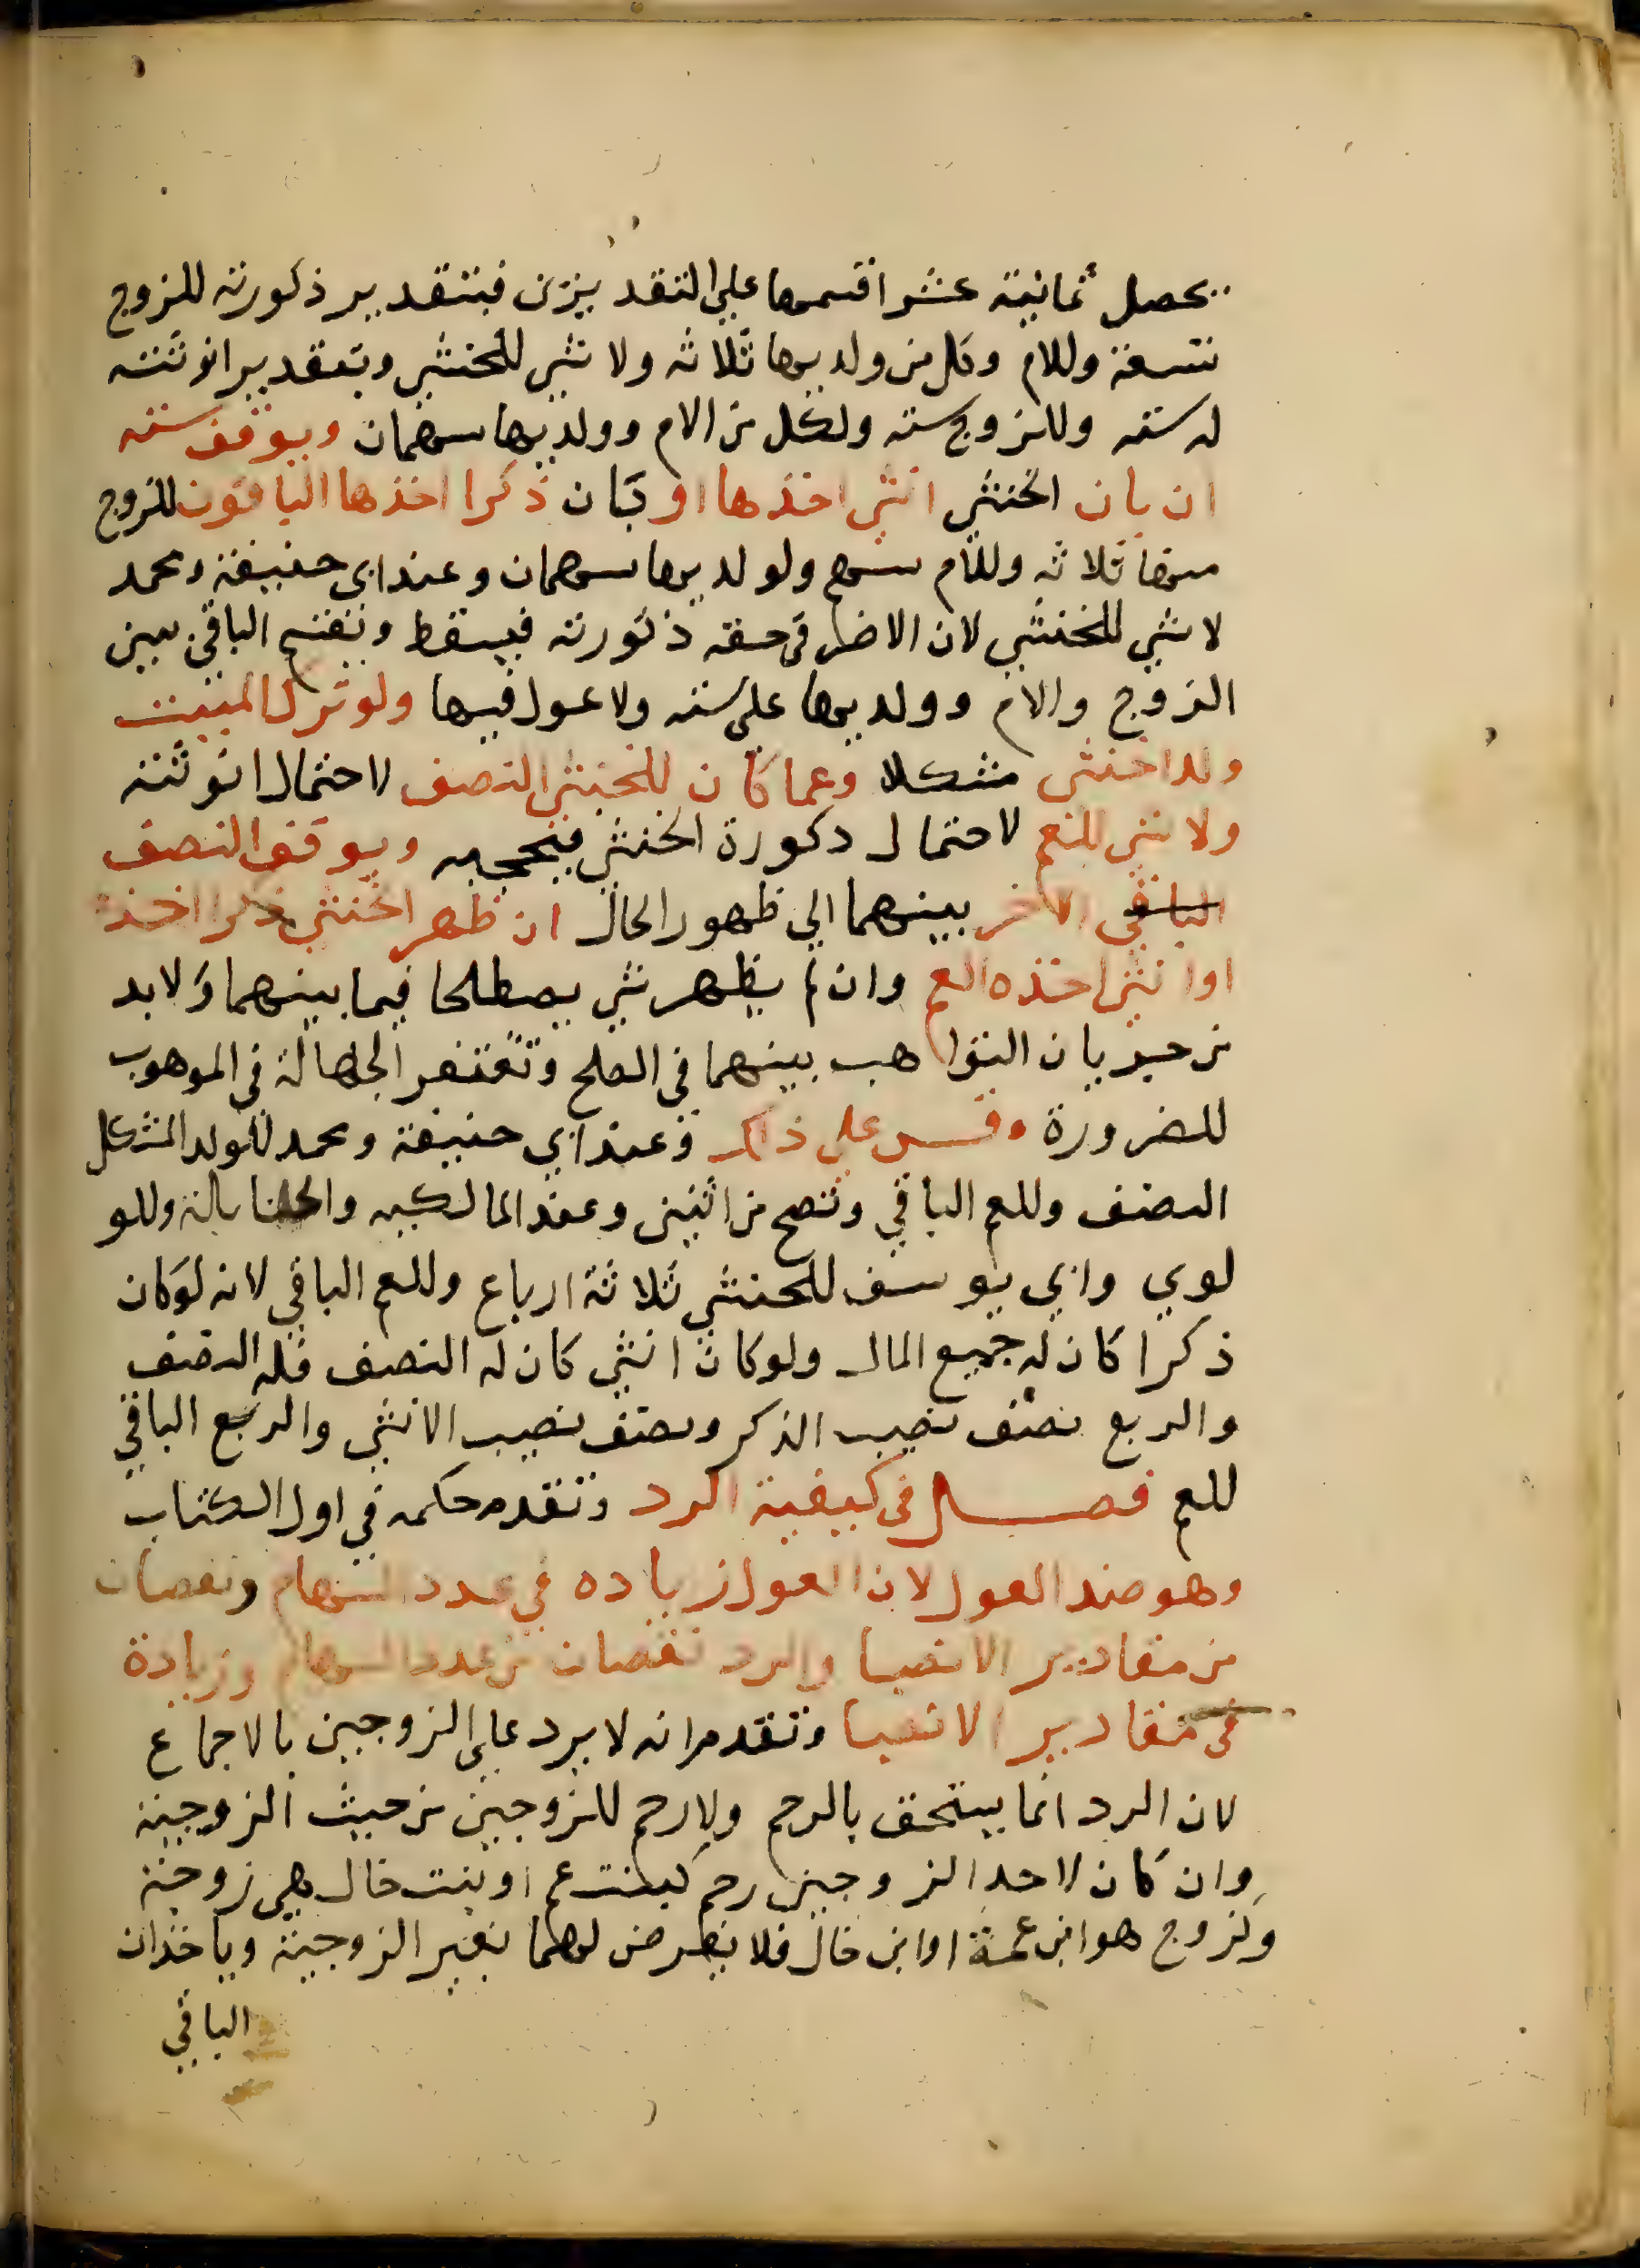 يحصل ثمانية عشر اقسمها علي التقديرين فبتقدير ذكورته للزوج
تسعة وللام وكل من ولديها ثلاثه ولا شي للخنثي وبتقدير انوثته
له سته وللزوج سته ولكل من الام وولديها سهمان ويوقف سته
ان بان الخنثي انثي اخذها او بان ذكرا اخذها الباقون للزوج
منها ثلاثه وللام سهم ولولديها سهمان وعند ابي حنيفة ومحمد
لا شي للخنثي لان الاضر في حقه ذكورته فيسقط ويقسم الباقي بين
الزوج والام وولديها علي سته ولا عول فيها ولو ترك الميت
ولدا خنثي مشكلا وعما كان للخنثي النصف لاحتمال انوثته
ولا شي للعم لاحتمال دكورة الخنثي فيحجبه ويوقف النصف
الباقي الاخر بينهما الي ظهور الحال ان ظهر الخنثي ذكرا اخذه
او انثي اخذه العم وان لم يظهر شي يصطلحا فيما بينهما ولا بد
من جريان التواهب بينهما في الصلح وتغتفر الجهالة في الموهوب
للضرورة وقس علي ذلك وعند ابي حنيفة ومحمد للولد المشكل
النصف وللعم الباقي وتصح من اثنين وعند المالكيه والحنابلة وللو
لوي وابي يوسف للخنثي ثلاثة ارباع وللعم الباقي لانه لو كان
ذكرا كان له جميع المال ولو كان انثي كان له النصف فله النصف
والربع نصف نصيب الذكر ونصف نصيب الانثي والربع الباقي
للعم فصل في كيفية الرد وتقدم حكمه في اول الكتاب
وهو ضد العول لان العول زياده في عدد السهام ونقصان
من مقادير الانصبا والرد نقصان من عدد السهام وزيادة
في مقادير الانصبا وتقدم انه لا يرد علي الزوجين بالاجماع
لان الرد انما يستحق بالرحم ولا رحم للزوجين من حيث الزوجية
وان كان لاحد الزوجين رحم كبنت عم او بنت خال هي زوجة
ولزوج هو ابن عمة او ابن خال فلا يفرض لهما بغير الزوجية وياخذان
الباقي